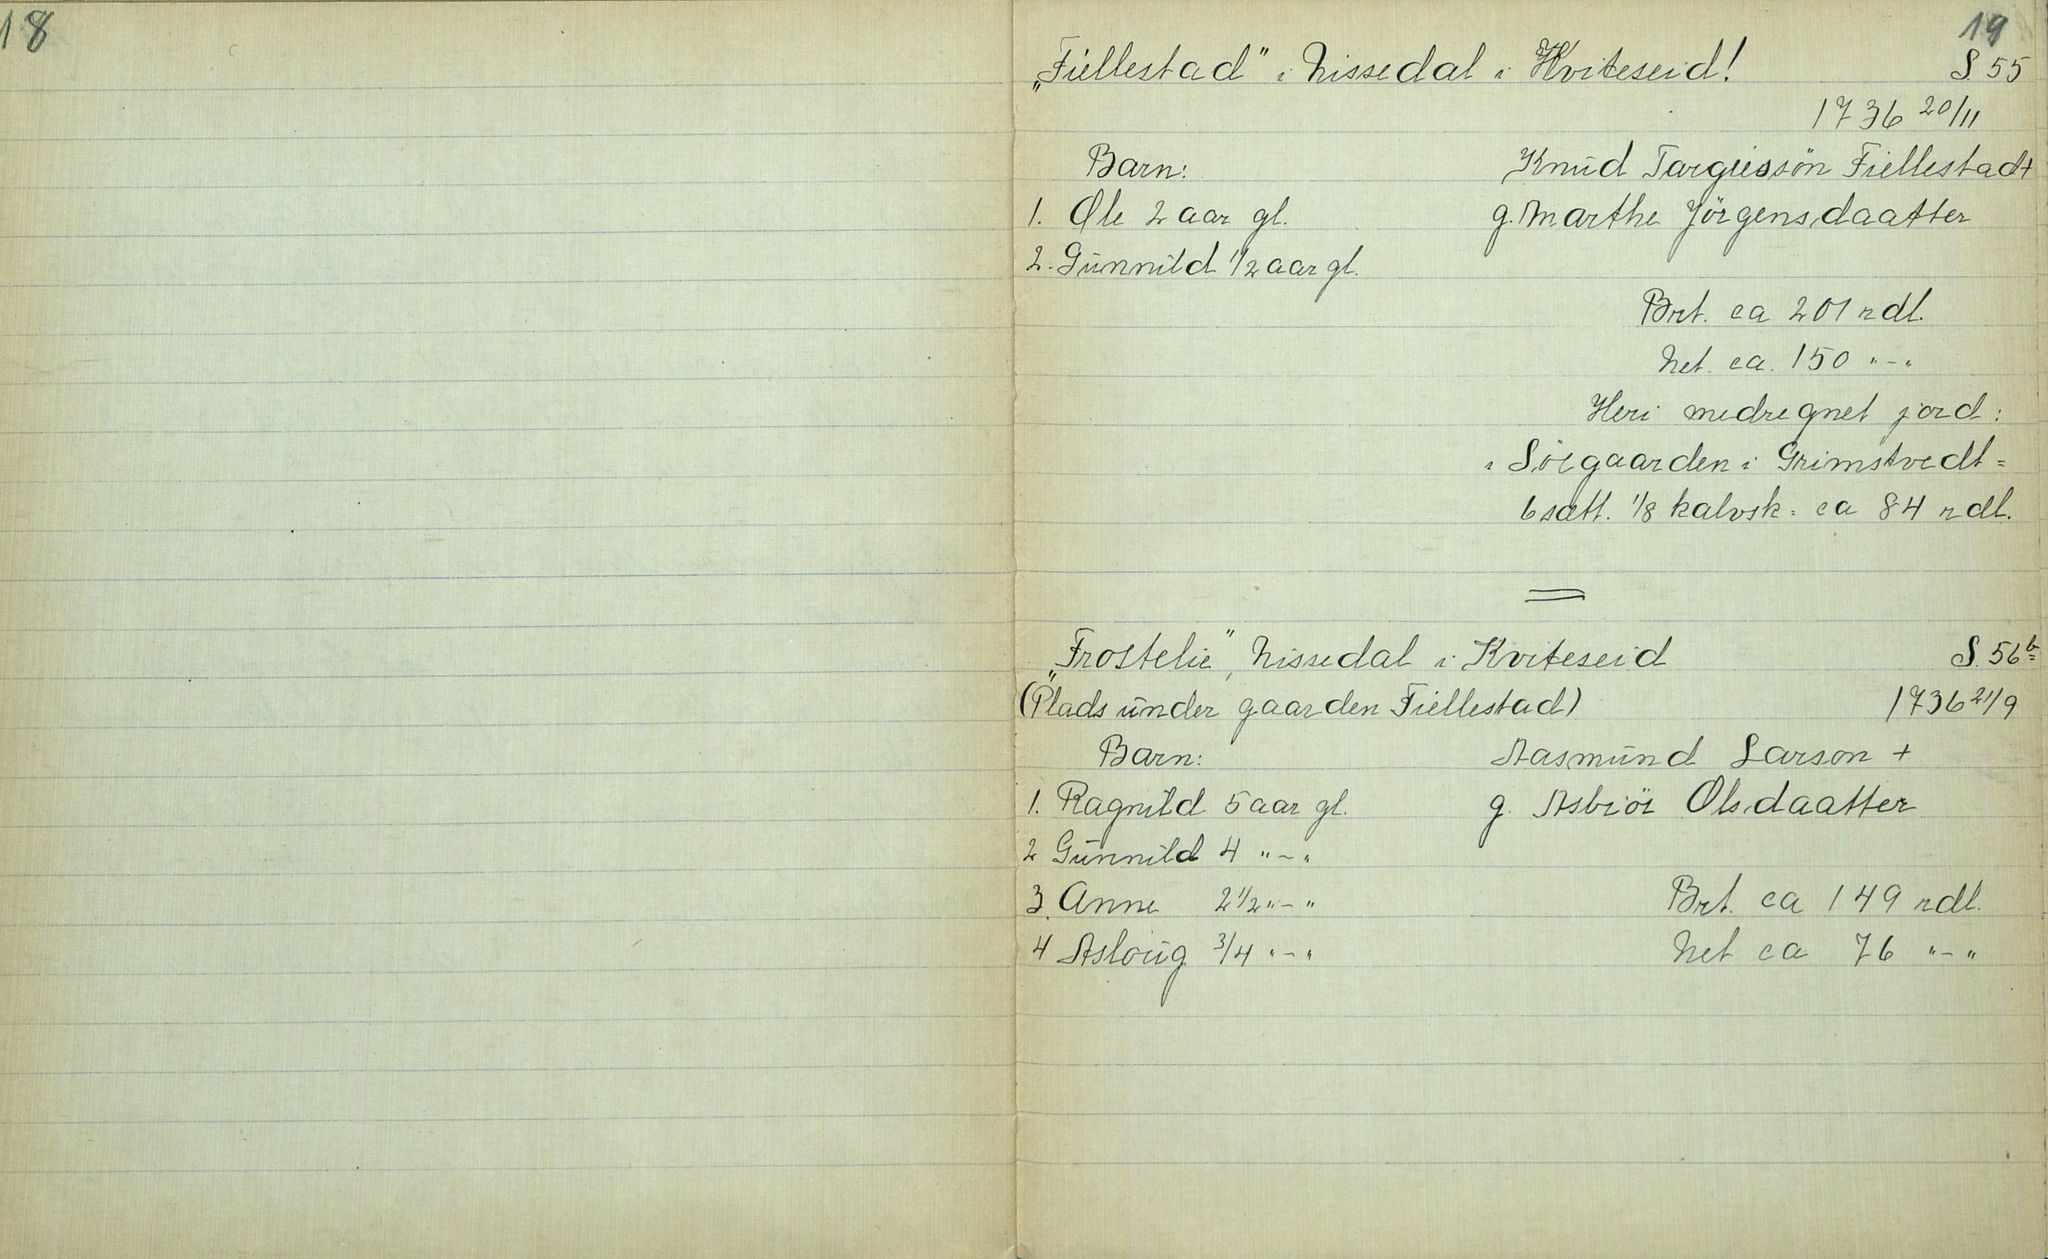 18
19
„Fiellestad" i Nissedal i Kviteseid!
S. 55
1736 20/11
Barn:
Knud Targiessön Fiellestad +
1. Ole 2 aar gl.
g. Marthe Jörgensdaatter
2. Gunnild 1/2 aar gl.
Brt. ca 201 rdl.
Net. ca. 150 "-"
Heri medregnet jord:
i Söigaarden i Grimstvedt =
6 sætt. 1/8 kalvsk. = ca 84 rdl.
„Frostelie", Nissedal i Kviteseid
S. 56 b
(Plads under gaarden Fiellestad)
1736 21/9
Barn:
Aasmund Larson +
1. Ragnild 5 aar gl.
g. Asbiör Olsdaatter
2 Gunnild 4 "-"
3. Anne 2 1/2 "-"
Brt. ca 149 rdl.
4 Asloug 3/4 "-"
Net ca 76 "-"